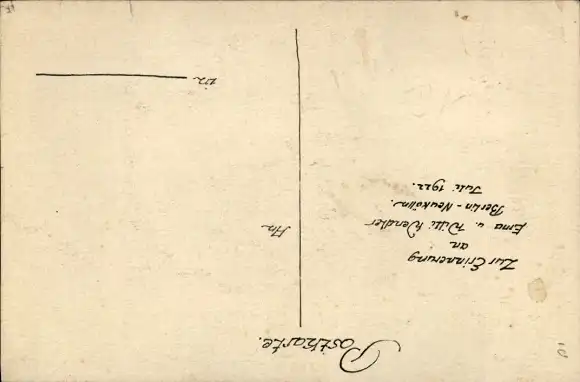 Postkarte.
Zur Erinnerung
an
Erna u. Willi Wendler
Berlin-Neukölln.
Juli 1922.
An
in